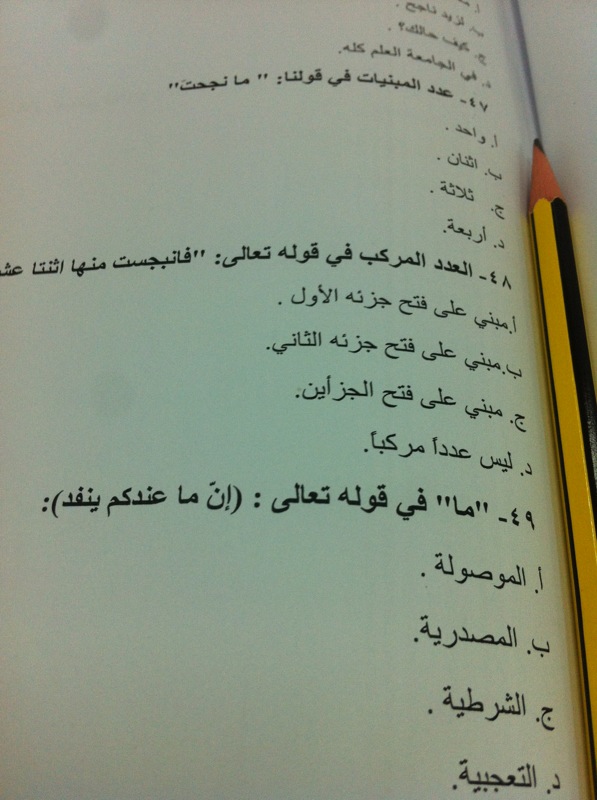 أ.
ب. لزيد ناجح .
ج. كيف حالك؟ .
د. في الجامعة العلم كله.
٤٧- عدد المبنيات في قولنا: " ما نجحت"
أ. واحد .
ب. اثنان .
ج. ثلاثة .
د. أربعة.
٤٨- العدد المركب في قوله تعالى: "فانبجست منها اثنتا
أ.مبني على فتح جزئه الأول .
ب.مبني على فتح جزئه الثاني.
ج. مبني على فتح الجزأين.
د. ليس عدداً مركباً.
٤٩- "ما" في قوله تعالى : (إنّ ما عندكم ينفد):
أ. الموصولة .
ب. المصدرية.
ج. الشرطية .
د. التعجبية.